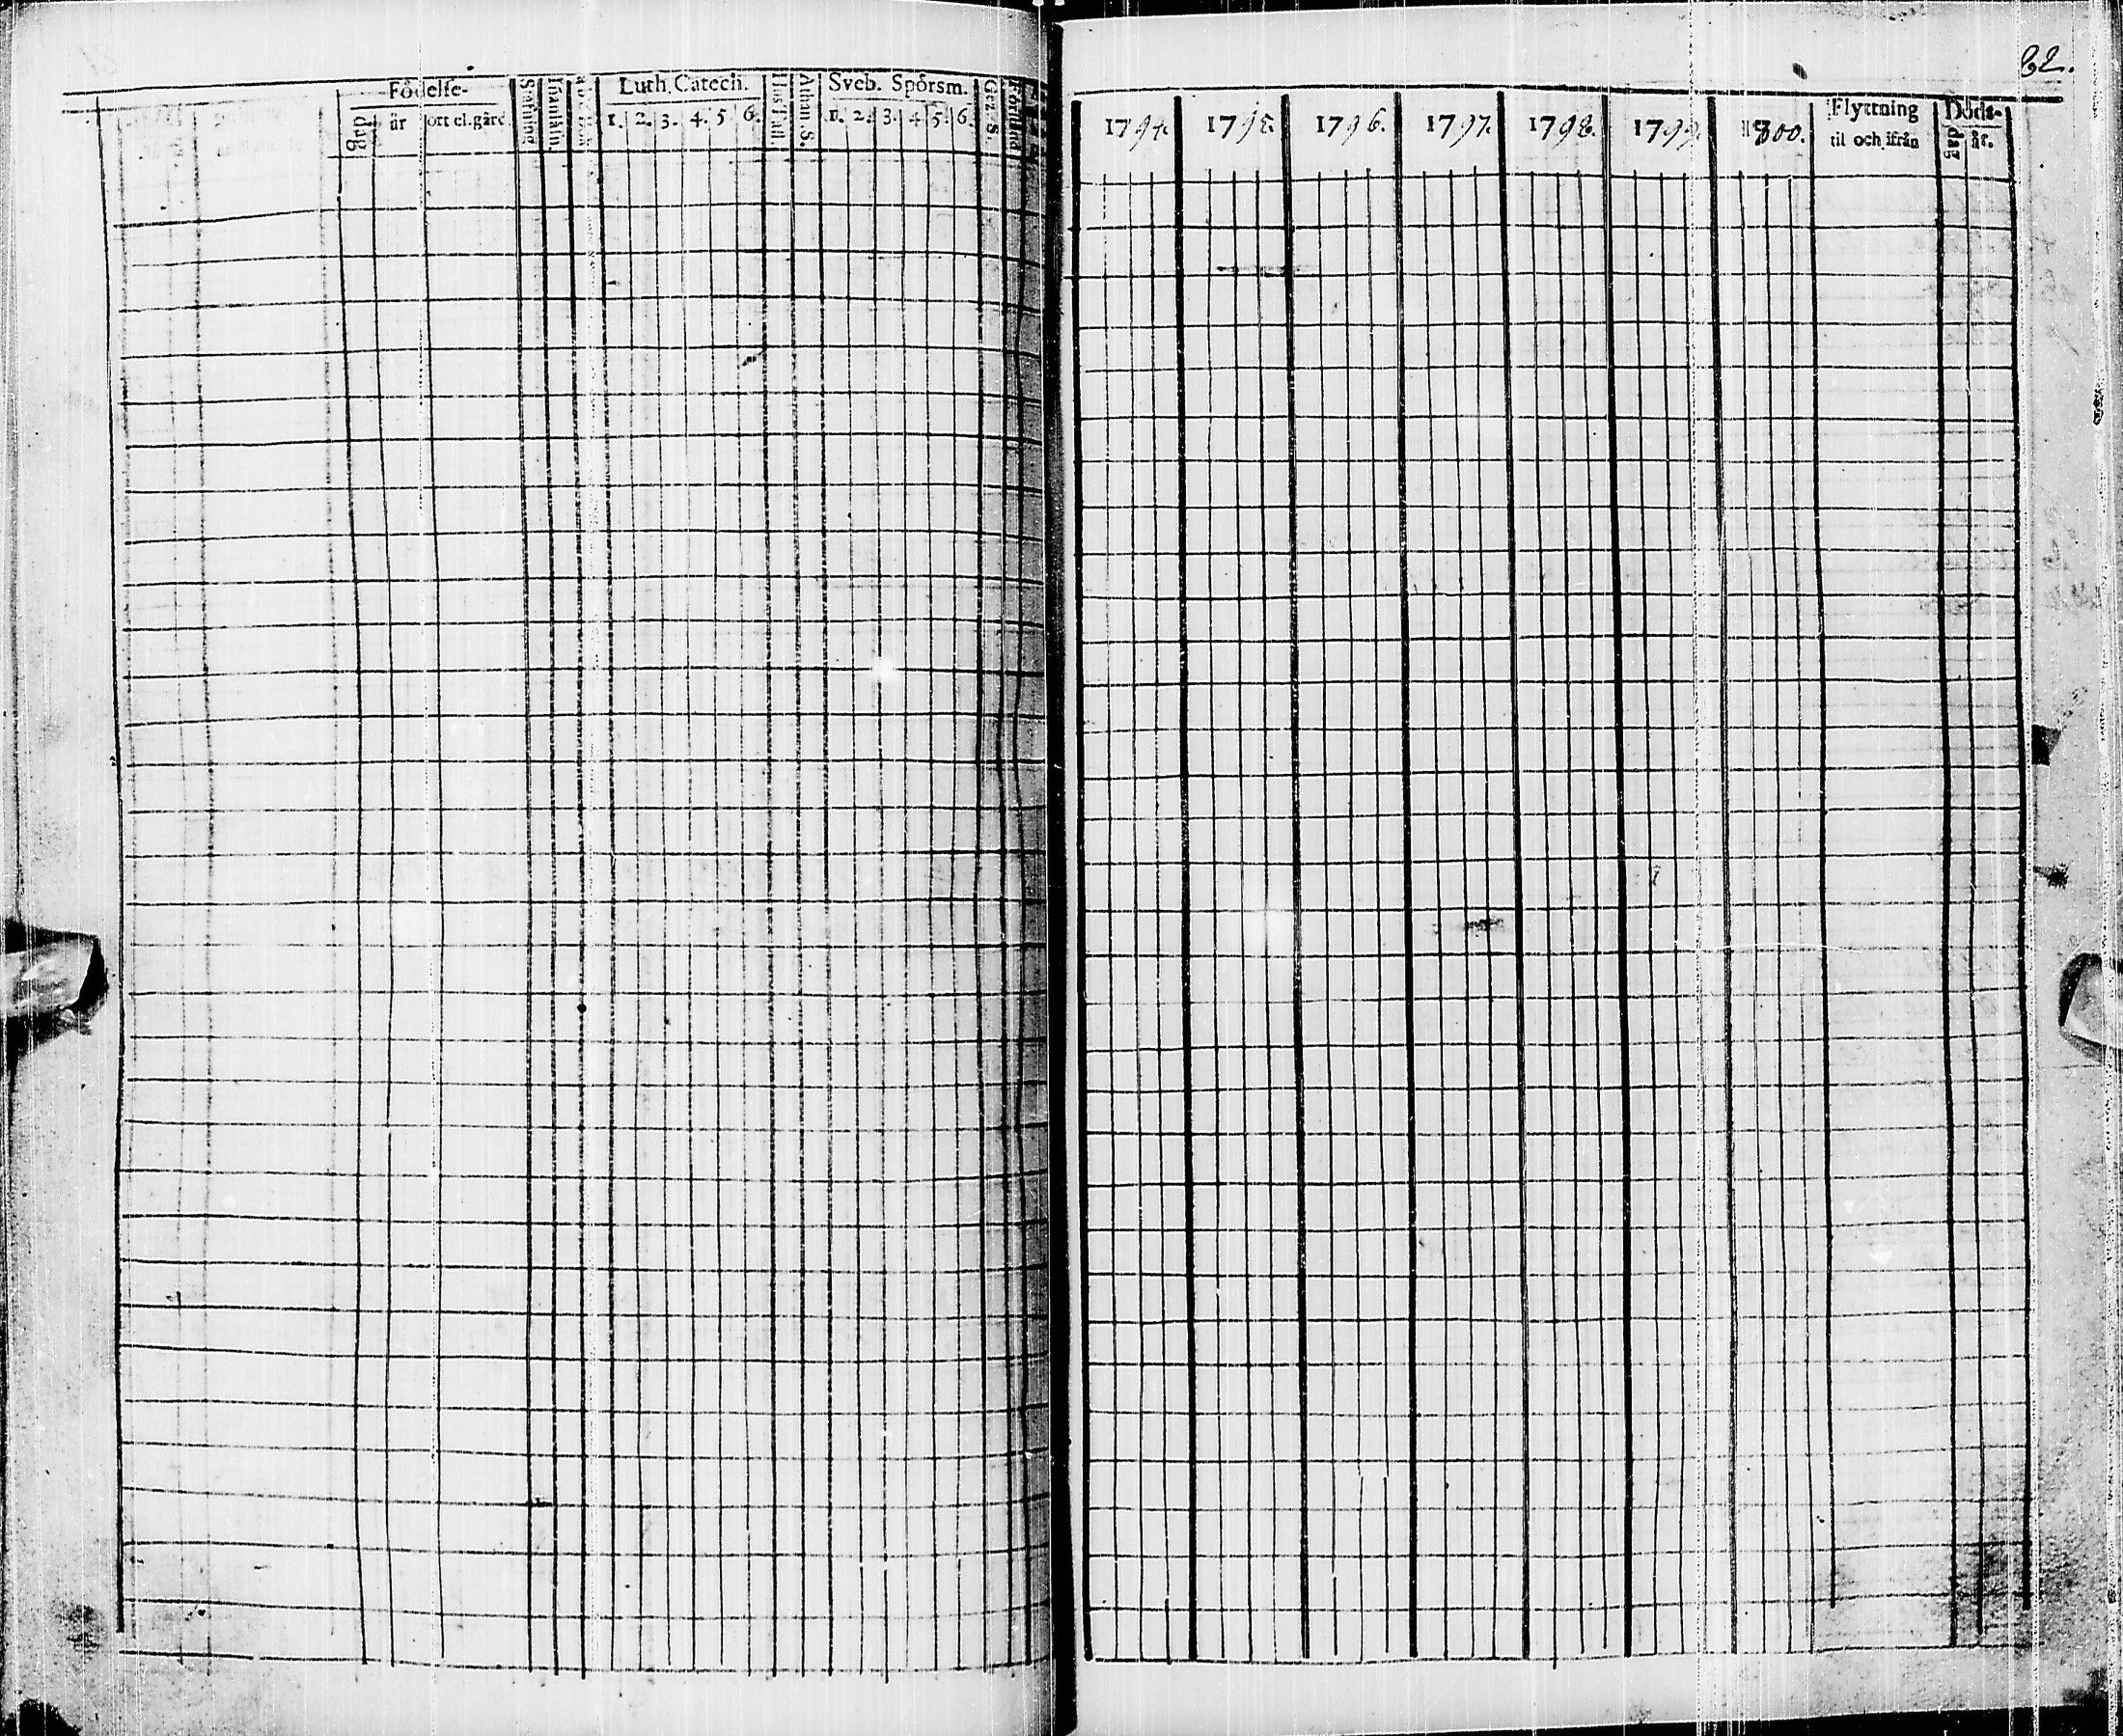 82.
Födelse-
dag
år
ort el. gård
Stafning
Innanläsn.
Luth. Catech.
1. 2. 3. 4. 5 6.
Hustafl.
Athan. S.
Sveb. Spörsm.
1. 2. 3. 4. 5. 6.
Gez. S.
Förstånd
1794.
1795.
1796.
1797.
1798.
1799.
1800.
Flyttning
til och ifrån
Döds-
dag
år.